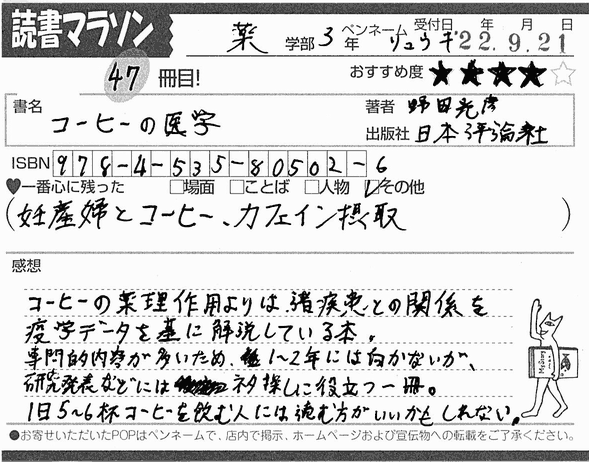 読書マラソン
薬 学部 3 年 ペンネーム リュウキ 受付日 年 月 日 '22.9.21
47 冊目!
おすすめ度 ★★★★☆
書名 コーヒーの医学
著者 野田光彦
出版社 日本評論社
ISBN 978-4-535-80502-6
♥一番心に残った □場面 □ことば □人物 ☑その他
(妊産婦とコーヒー、カフェイン摂取)
感想
コーヒーの薬理作用よりは諸疾患との関係を
疫学データを基に解説している本。
専門的内容が多いため、1〜2年には向かないが、
研究発表などにはネタ探しに役立つ一冊。
1日5〜6杯コーヒーを飲む人には読む方がいいかもしれない。
●お寄せいただいたPOPはペンネームで、店内で掲示、ホームページおよび宣伝物への転載をご了承ください。